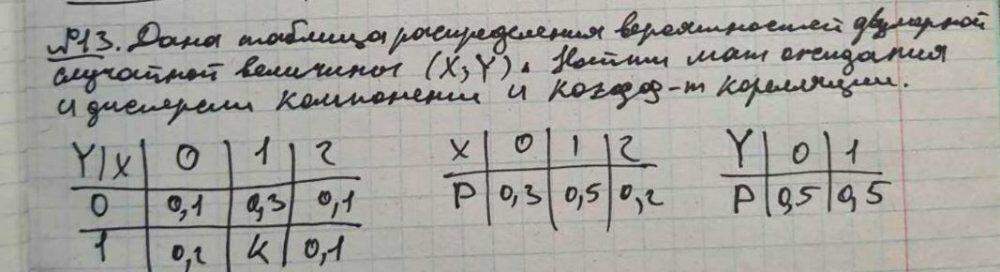 №13. Дана таблица распределения вероятностей двумерной
случайной величины (X, Y). Найти мат ожидания
и дисперсии компонент и коэфф-т корелляции.
Y/X 0 1 2
0 0,1 0,3 0,1
1 0,2 K 0,1
X 0 1 2
P 0,3 0,5 0,2
Y 0 1
P 0,5 0,5